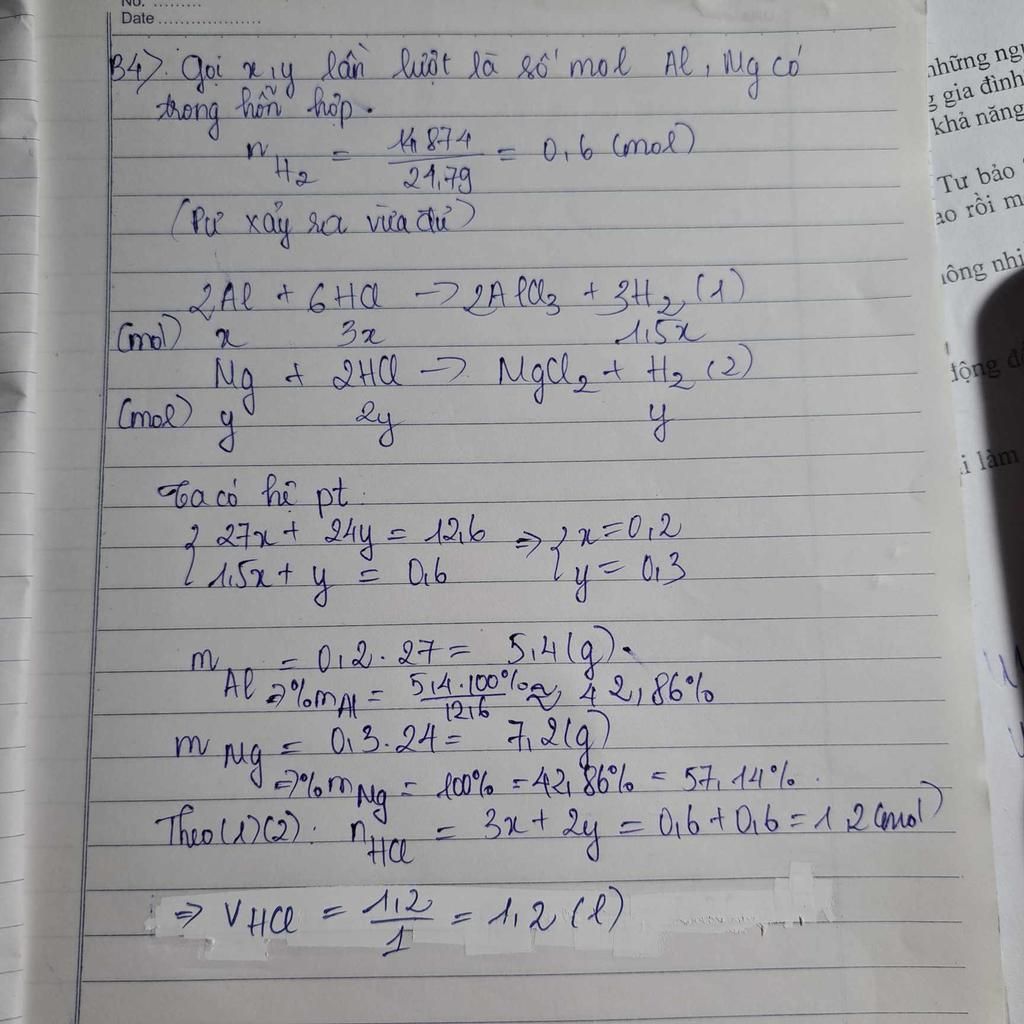 No. .........
Date ...................
B4>. Gọi x, y lần lượt là số mol Al, Mg có
trong hỗn hợp.
n H2 = 14,874 / 24,79 = 0,6 (mol)
(Pư xảy ra vừa đủ)
2Al + 6HCl -> 2AlCl3 + 3H2 (1)
(mol) x 3x 1,5x
Mg + 2HCl -> MgCl2 + H2 (2)
(mol) y 2y y
Ta có hệ pt:
{ 27x + 24y = 12,6 => { x = 0,2
{ 1,5x + y = 0,6 { y = 0,3
m Al = 0,2 . 27 = 5,4 (g).
=> %m Al = 5,4 . 100% / 12,6 ≈ 42,86%
m Mg = 0,3 . 24 = 7,2 (g)
=> %m Mg = 100% = 42,86% = 57,14%.
Theo (1) (2): n HCl = 3x + 2y = 0,6 + 0,6 = 1,2 (mol)
=> V HCl = 1,2 / 1 = 1,2 (l)
những
gia đình
khả năng
Tư bảo
rồi
nhị
động
làm